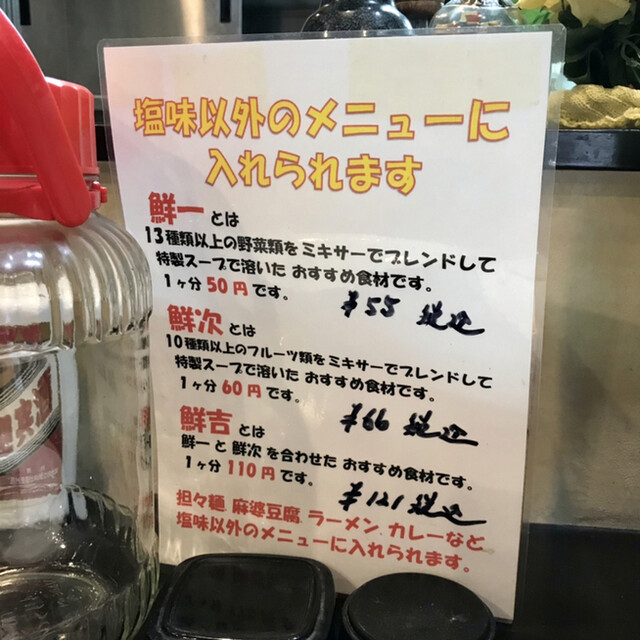 塩味以外のメニューに
入れられます
鮮一 とは
13種類以上の野菜類をミキサーでブレンドして
特製スープで溶いた おすすめ食材です。
1ヶ分50円です。
¥55 税込
鮮次 とは
10種類以上のフルーツ類をミキサーでブレンドして
特製スープで溶いた おすすめ食材です。
1ヶ分60円です。
¥66 税込
鮮吉 とは
鮮一 と 鮮次 を合わせた おすすめ食材です。
1ヶ分110円です。
¥121 税込
担々麺 麻婆豆腐 ラーメン カレーなど
塩味以外のメニューに入れられます。